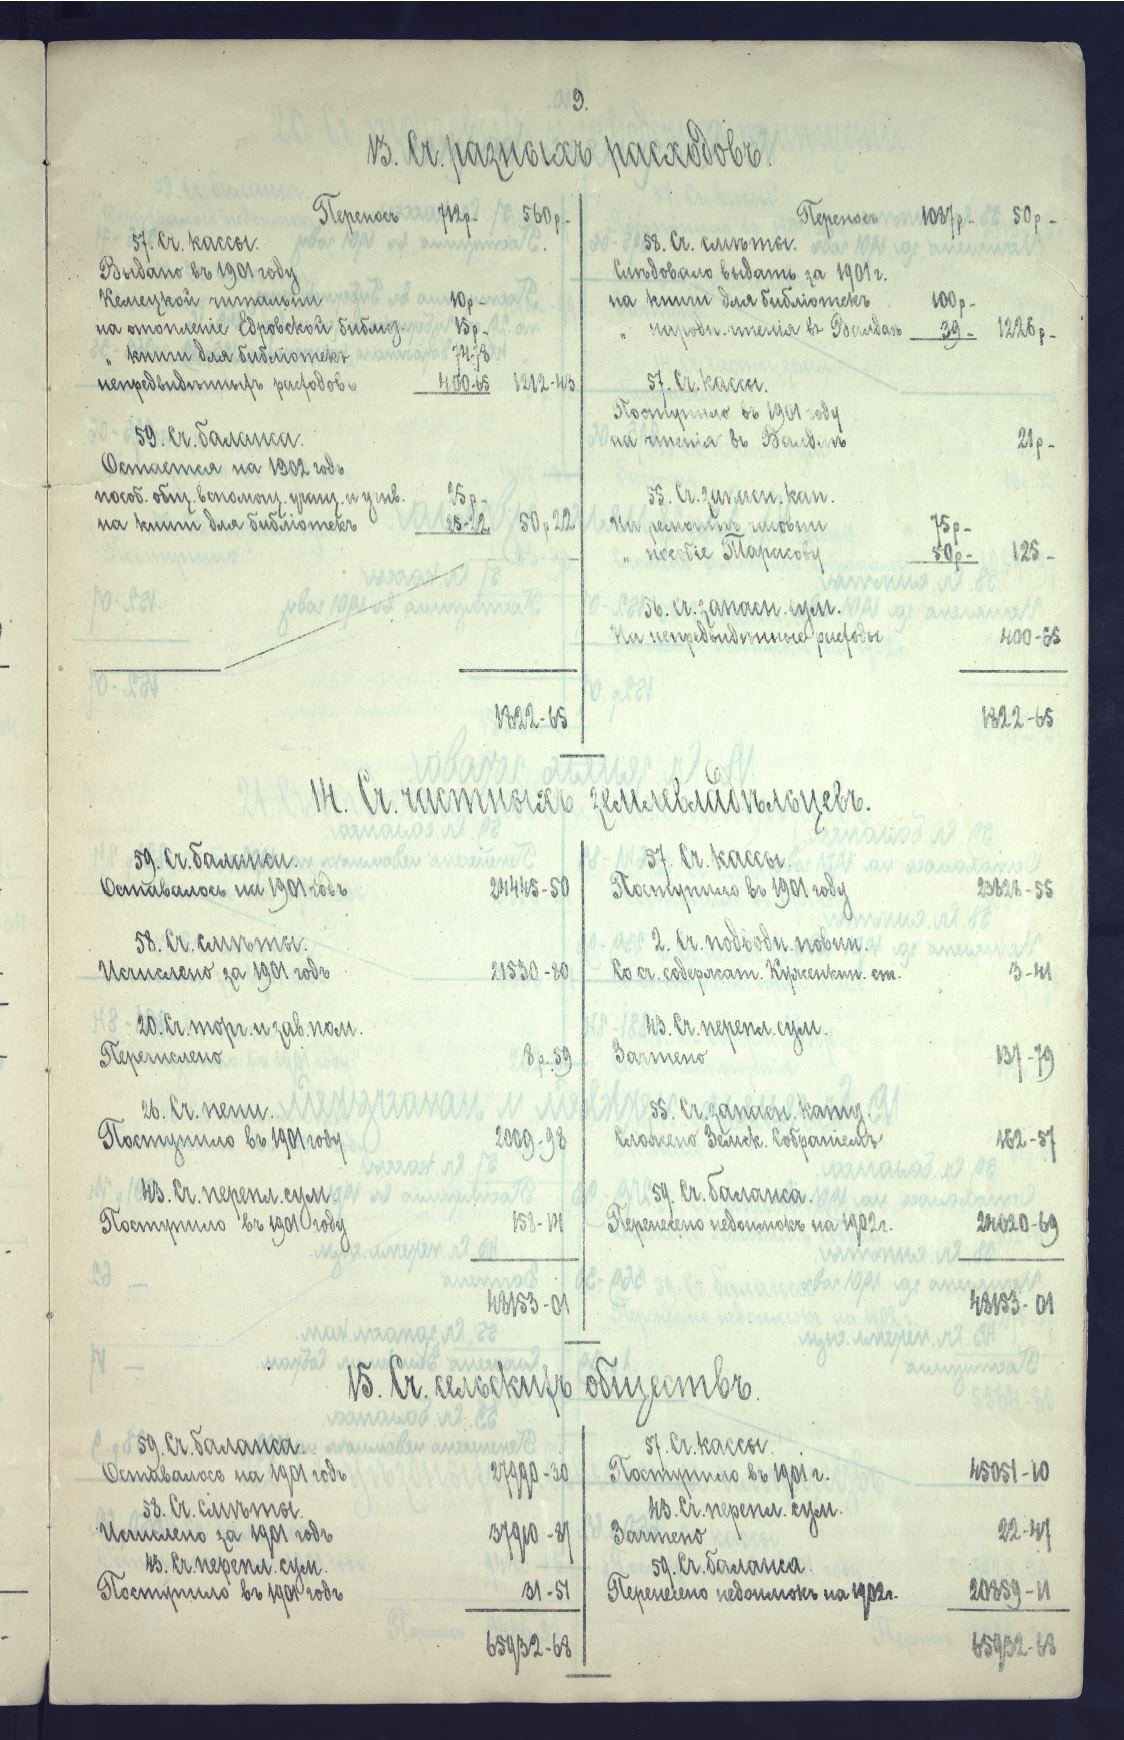 9.
13. Сч. разныхъ расходовъ.
Переносъ 712р- 560р-
57. Сч. кассы.
Выдано въ 1901 году
Кемецкой читальни 10р-
на отопленіе Едровской библіо 15р-
„ книги для библіотекъ 74-78
непредвидѣнныхъ расходовъ 400-65 1212-43
59. Сч. баланса.
Остается на 1902 годъ
пособ. общ. вспомощ. учащ. и учив. 25р-
на книги для библіотекъ 25-22 50р22
1822-65
Переносъ 1087р- 50р-
58. Сч. смѣты.
Слѣдовало выдать за 1901 г.
на книги для библіотекъ 100р-
„ народн. чтенія въ Валдаѣ 39- 1226р-
57. Сч. кассы.
Поступило въ 1901 году
на чтенія въ Валдаѣ 21р-
55. Сч. запасн. кап.
На ремонтъ часовни 75р-
„ пособіе Тарасову 50р- 125-
56. Сч. запасн. сум.
На непредвидѣнные расходы 400-65
1822-65
14. Сч. частныхъ землевладѣльцевъ.
59. Сч. баланса.
Оставалось на 1901 годъ 24445-50
58. Сч. смѣты.
Исчислено за 1901 годъ 21530-80
20. Сч. торг. и зав. пом.
Перечислено 8р.59
26. Сч. пени.
Поступило въ 1901 году 2009-98
43. Сч. перепл. сум.
Поступило въ 1901 году 158-14
48153-01
57. Сч. кассы.
Поступило въ 1901 году 23828-55
2. Сч. подводн. повин.
Со сч. содержат. Куженкин. ст. 3-41
43. Сч. перепл. сум.
Зачтено 137-79
55. Сч. запасн. капит.
Сложено Земск. Собраніемъ 162-57
59. Сч. баланса.
Перенесено недоимокъ на 1902г. 24020-69
48153-01
15. Сч. сельскихъ обществъ.
59. Сч. баланса.
Оставалось на 1901 годъ 27990-30
58. Сч. смѣты.
Исчислено за 1901 годъ 37910-87
43. Сч. перепл. сум.
Поступило въ 1901 годъ 31-51
65932-68
57. Сч. кассы.
Поступило въ 1901 г. 45051-10
43. Сч. перепл. сум.
Зачтено 22-47
59. Сч. баланса.
Перенесено недоимокъ на 1902г. 20859-11
65932-68